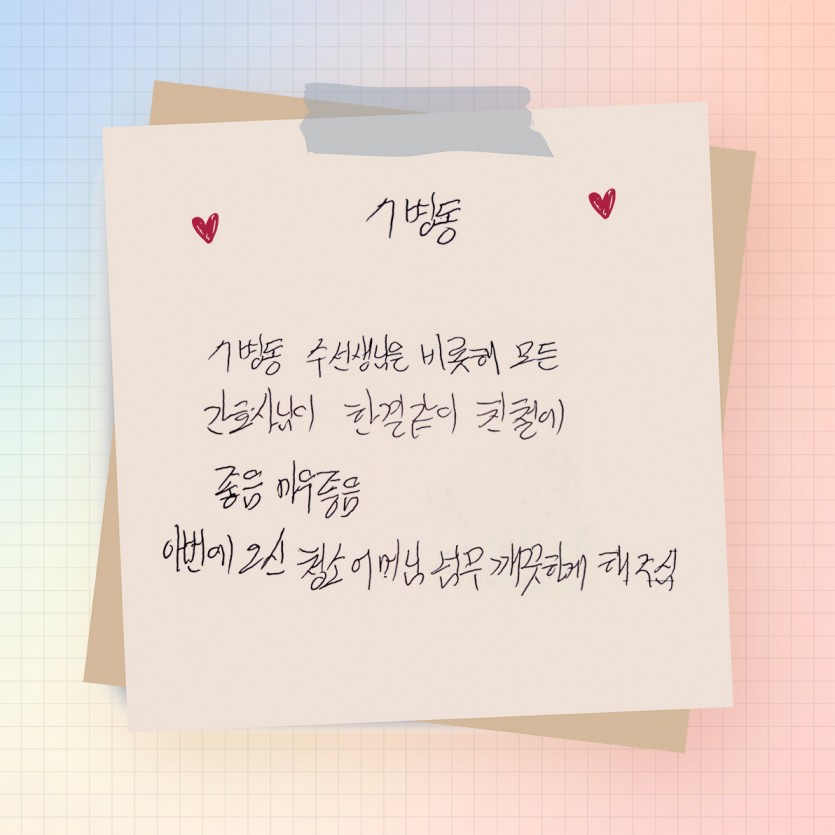 7병동
7병동 수선생님을 비롯해 모든
간호사님이 한결같이 친절에
좋음 매우좋음
이번에 오신 청소 어머님 너무 깨끗하게 해 주심